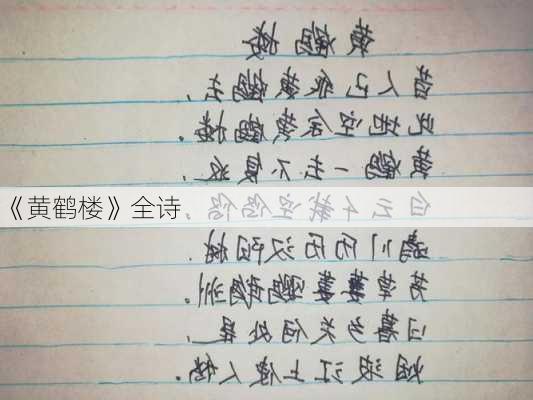 黄鹤楼
昔人已乘黄鹤去,
此地空余黄鹤楼。
黄鹤一去不复返,
《黄鹤楼》全诗
白云千载空悠悠。
晴川历历汉阳树,
芳草萋萋鹦鹉洲。
日暮乡关何处是,
烟波江上使人愁。